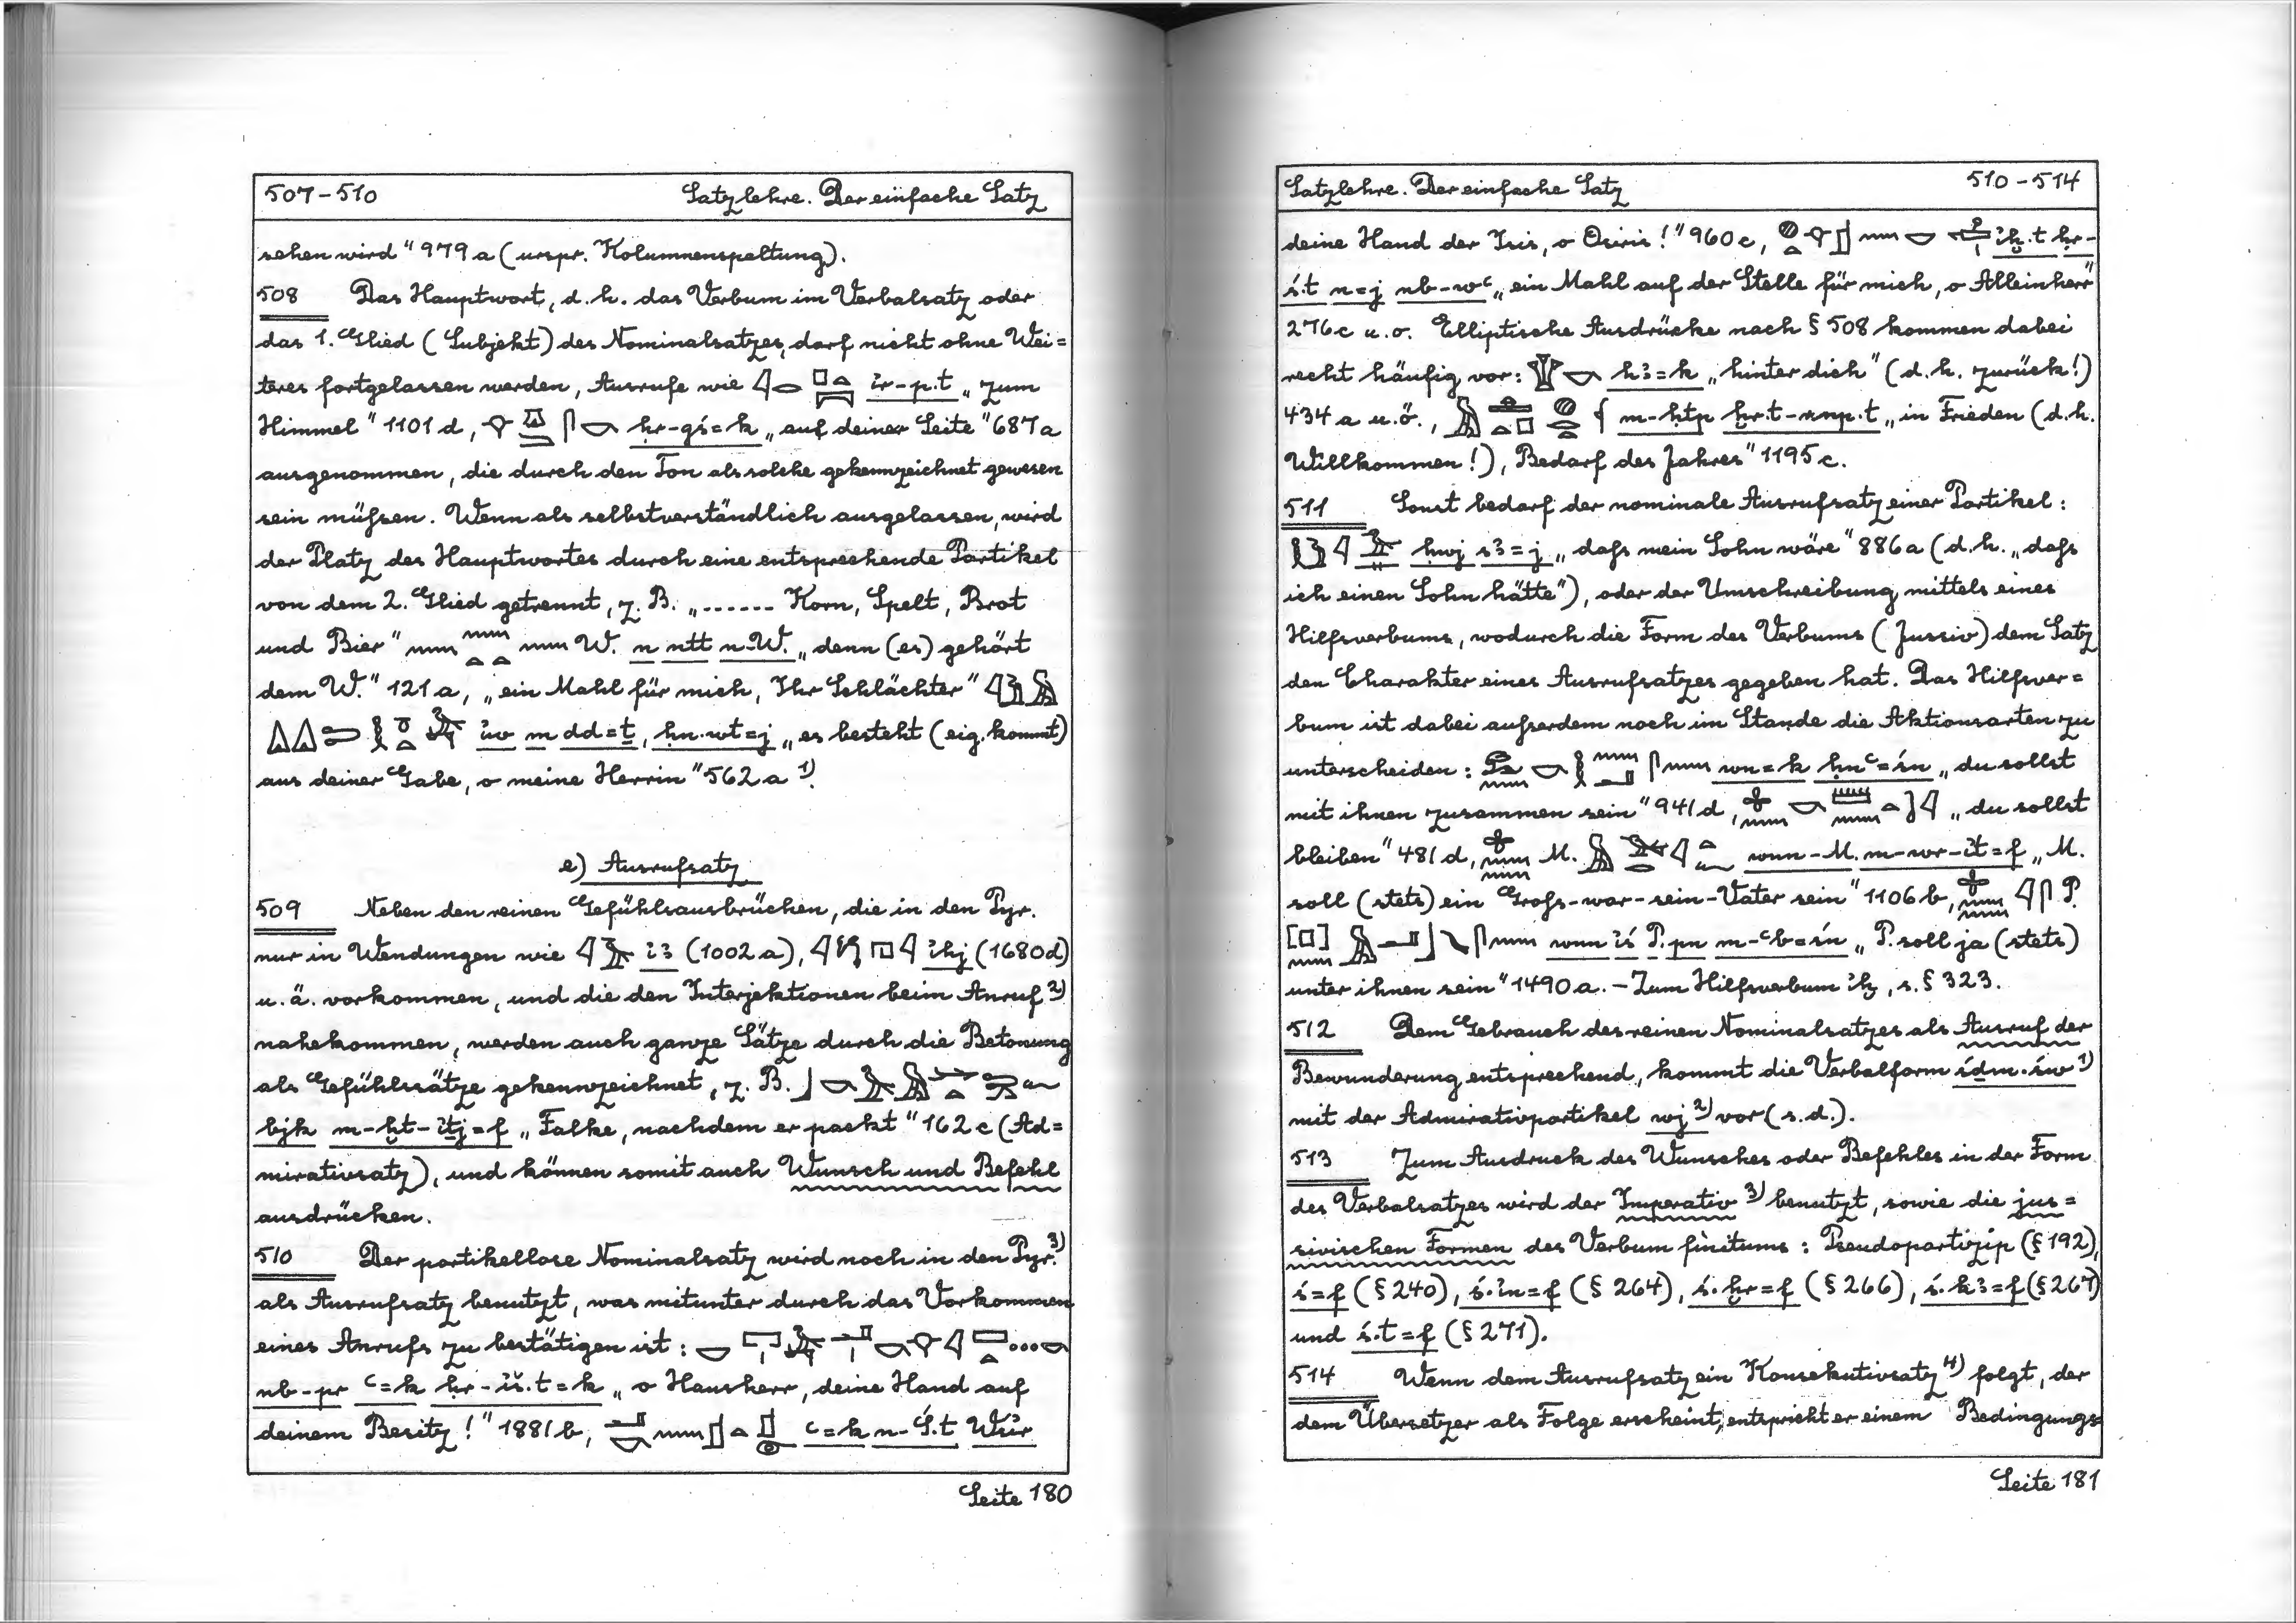 507-510 Satzlehre. Der einfache Satz
sehen wird" 979 a (urspr. Kolumnenspaltung).
508 Das Hauptwort, d.h. das Verbum im Verbalsatz oder
das 1. Glied (Subjekt) des Nominalsatzes, darf nicht ohne Wei=
teres fortgelassen werden, Ausrufe wie ỉr-p.t „zum
Himmel" 1101 d, ḥr-gś=k „auf deiner Seite" 687 a
ausgenommen, die durch den Ton als solche gekennzeichnet gewesen
sein müßsen. Wenn als selbstverständlich ausgelassen, wird
der Platz des Hauptwortes durch eine entsprechende Partikel
von dem 2. Glied getrennt, z.B. „...... Korn, Spelt, Brot
und Bier" W. n ntt n-W. „denn (es) gehört
dem W." 121 a, „ein Mahl für mich, Ihr Schlächter"
ỉw m dd=ṯ, ḥn.wt=j „es besteht (eig. kommt)
aus deiner Gabe, o meine Herrin" 562 a 1).
e) Ausrufsatz
509 Neben den reinen Gefühlsausbrüchen, die in den Pyr.
nur in Wendungen wie ỉꜣ (1002 a), ỉhj (1680 d)
u.ä. vorkommen, und die den Interjektionen beim Anruf 2)
nahekommen, werden auch ganze Sätze durch die Betonung
als Gefühlssätze gekennzeichnet, z.B.
bjk m-ḫt-ỉṯj=f „Falke, nachdem er packt" 162 c (Ad=
mirativsatz), und können somit auch Wunsch und Befehl
ausdrücken.
510 Der partikellose Nominalsatz wird noch in den Pyr. 3)
als Ausrufsatz benutzt, was mitunter durch das Vorkommen
eines Anrufs zu bestätigen ist: ...
nb-pr ꜥ=k ḥr-ỉš.t=k „o Hausherr, deine Hand auf
deinem Besitz!" 1881 b, ꜥ=k n-Ś.t Wśỉr
Seite 180
Satzlehre. Der einfache Satz 510-514
deine Hand der Isis, o Osiris!" 960 c, ỉḫ.t ḥr-
ś.t n=j nb-wꜥ „ein Mahl auf der Stelle für mich, o Alleinherr"
276 c u.o. Elliptische Ausdrücke nach § 508 kommen dabei
recht häufig vor: ḥꜣ=k „hinter dich" (d.h. zurück!)
434 a u.ö., m-ḥtp ḫr.t-rnp.t „in Frieden (d.h.
Willkommen!), Bedarf des Jahres" 1195 c.
511 Sonst bedarf der nominale Ausrufsatz einer Partikel:
ḥwj sꜣ=j „daß mein Sohn wäre" 886 a (d.h. „daß
ich einen Sohn hätte"), oder der Umschreibung mittels eines
Hilfsverbums, wodurch die Form des Verbums (Jussiv) dem Satz
den Charakter eines Ausrufsatzes gegeben hat. Das Hilfsver=
bum ist dabei außerdem noch im Stande die Aktionsarten zu
unterscheiden: wn=k ḥnꜥ=śn „du sollst
mit ihnen zusammen sein" 941 d, „du sollst
bleiben" 481 d, M. wnn-M. m-wr-ỉt=f „M.
soll (stets) ein Groß-war-sein-Vater sein" 1106 b, P.
wnn ỉś P. pn m-ꜥb=śn „P. soll ja (stets)
unter ihnen sein" 1490 a. - Zum Hilfsverbum ỉḫ, s. § 323.
512 Dem Gebrauch des reinen Nominalsatzes als Ausruf der
Bewunderung entsprechend, kommt die Verbalform śḏm.św 1)
mit der Admirativpartikel wj 2) vor (s.d.).
513 Zum Ausdruck des Wunsches oder Befehles in der Form
des Verbalsatzes wird der Imperativ 3) benutzt, sowie die jus=
sivischen Formen des Verbum finitums: Pseudopartizip (§ 192),
ś=f (§ 240), ś.ỉn=f (§ 264), ś.ḫr=f (§ 266), ś.kꜣ=f (§ 267)
und ś.t=f (§ 271).
514 Wenn dem Ausrufsatz ein Konsekutivsatz 4) folgt, der
dem Übersetzer als Folge erscheint, entspricht er einem Bedingungs=
Seite 181